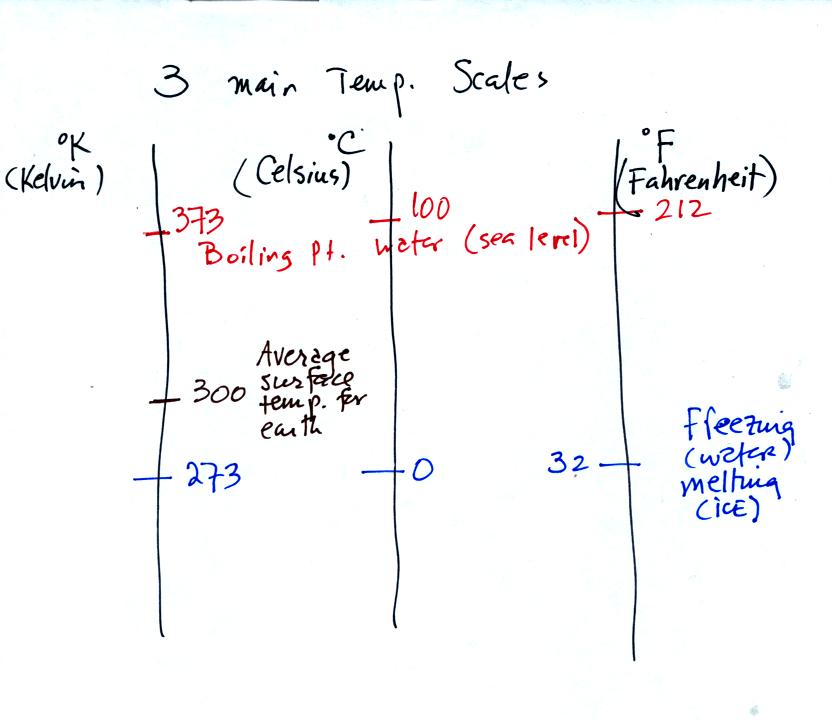 3 main Temp. Scales
°K
(Kelvin)
°C
(Celsius)
°F
(Fahrenheit)
373
100
212
Boiling Pt. water (sea level)
300
Average
surface
temp. for
earth
273
0
32
Freezing
(water)
melting
(ICE)